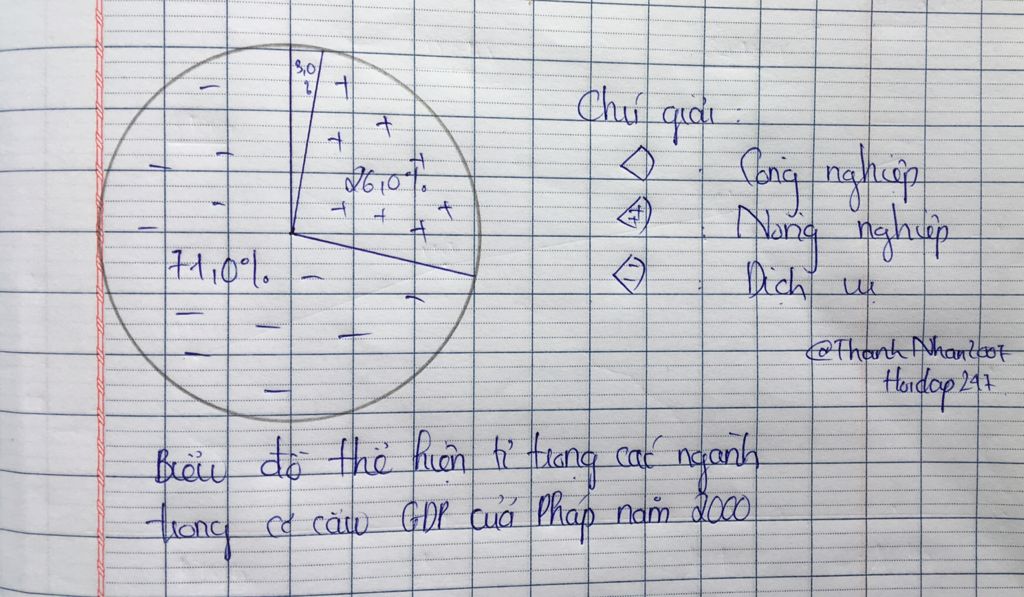 3,0
%
26,0%
71,0%
Chú giải :
: Công nghiệp
: Nông nghiệp
: Dịch vụ
@ThanhNhan2007
Hoidap247
Biểu đồ thể hiện tỉ trọng các ngành
trong cơ cấu GDP của Pháp năm 2000